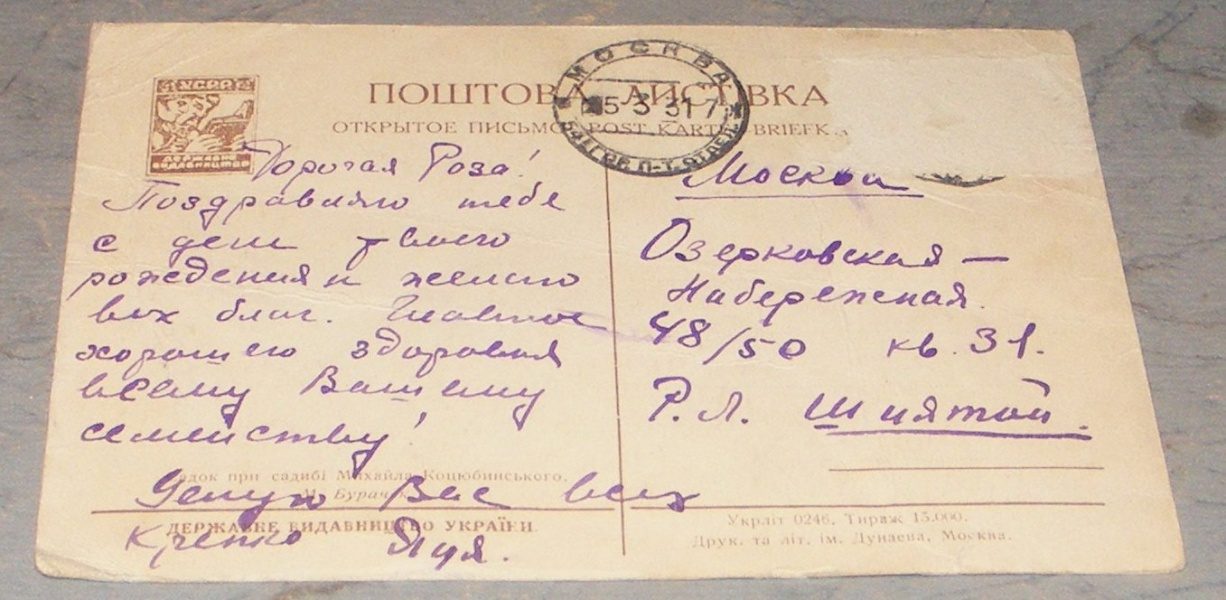 УСРР
ДЕРЖАВНЕ
ВИДАВНИЦТВО
ПОШТОВА ЛИСТІВКА
ОТКРЫТОЕ ПИСЬМО POST KARTE-BRIEFK
МОСКВА
5 3 31 7
П-Т. ОТДЕЛ
Дорогая Роза!
Поздравляю тебе
с ден твоего
рождения и желаю
всех благ. Главное
хорошего здоровья
всему Вашему
семейству!
Целую Вас всех
Крепко
Москва
Озерковская —
Набережная.
48/50 кв. 31.
Р. Л.
док при садибі Михайла Коцюбинського.
Бурач
ДЕРЖАВНЕ ВИДАВНИЦТВО УКРАЇНИ
Укрліт 0246. Тираж 15.000.
Друк. та літ. ім. Дунаева, Москва.